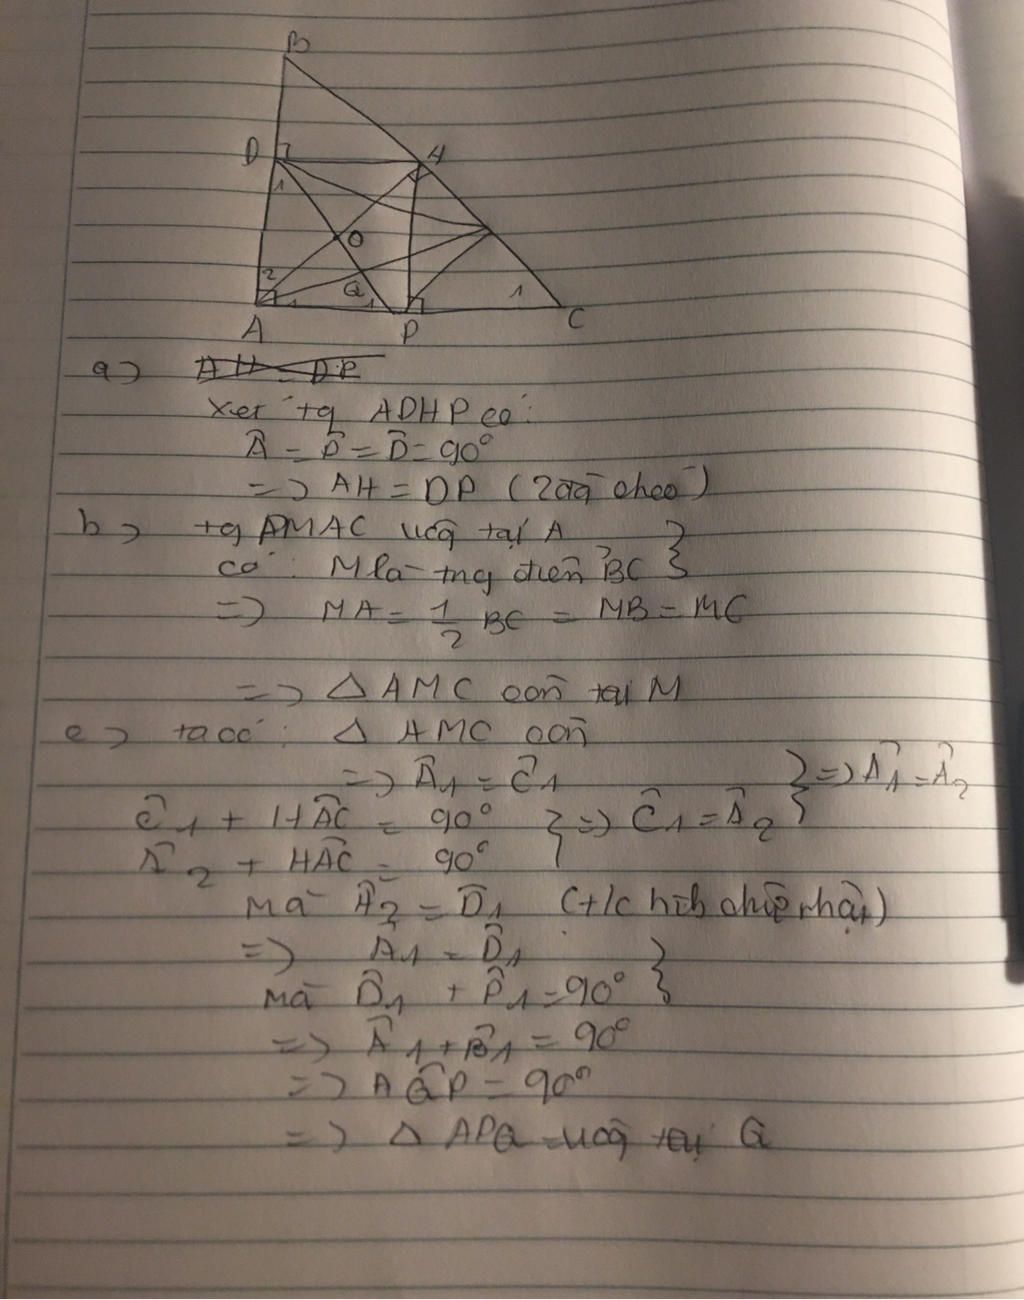 B
D
H
1
O
2
Q
1
1
1
A
P
C
a) AH = DP
Xét tg ADHP có:
Â = P̂ = D̂ = 90°
=> AH = DP (2 đg chéo)
b) tg AMAC vuôg tại A
có: M là trug điểm BC }
=> MA = 1/2 BC = MB = MC
=> Δ AMC cân tại M
c) ta có: Δ AMC cân
=> Â1 = Ĉ1 } => Â1 = Â2
Ĉ1 + HÂC = 90° } => Ĉ1 = Â2
Â2 + HÂC = 90°
Mà Â2 = D̂1 (t/c hìh chữ nhật)
=> Â1 = D̂1 }
mà D̂1 + P̂1 = 90°
=> Â1 + P̂1 = 90°
=> AQ̂P = 90°
=> Δ APQ vuôg tại Q